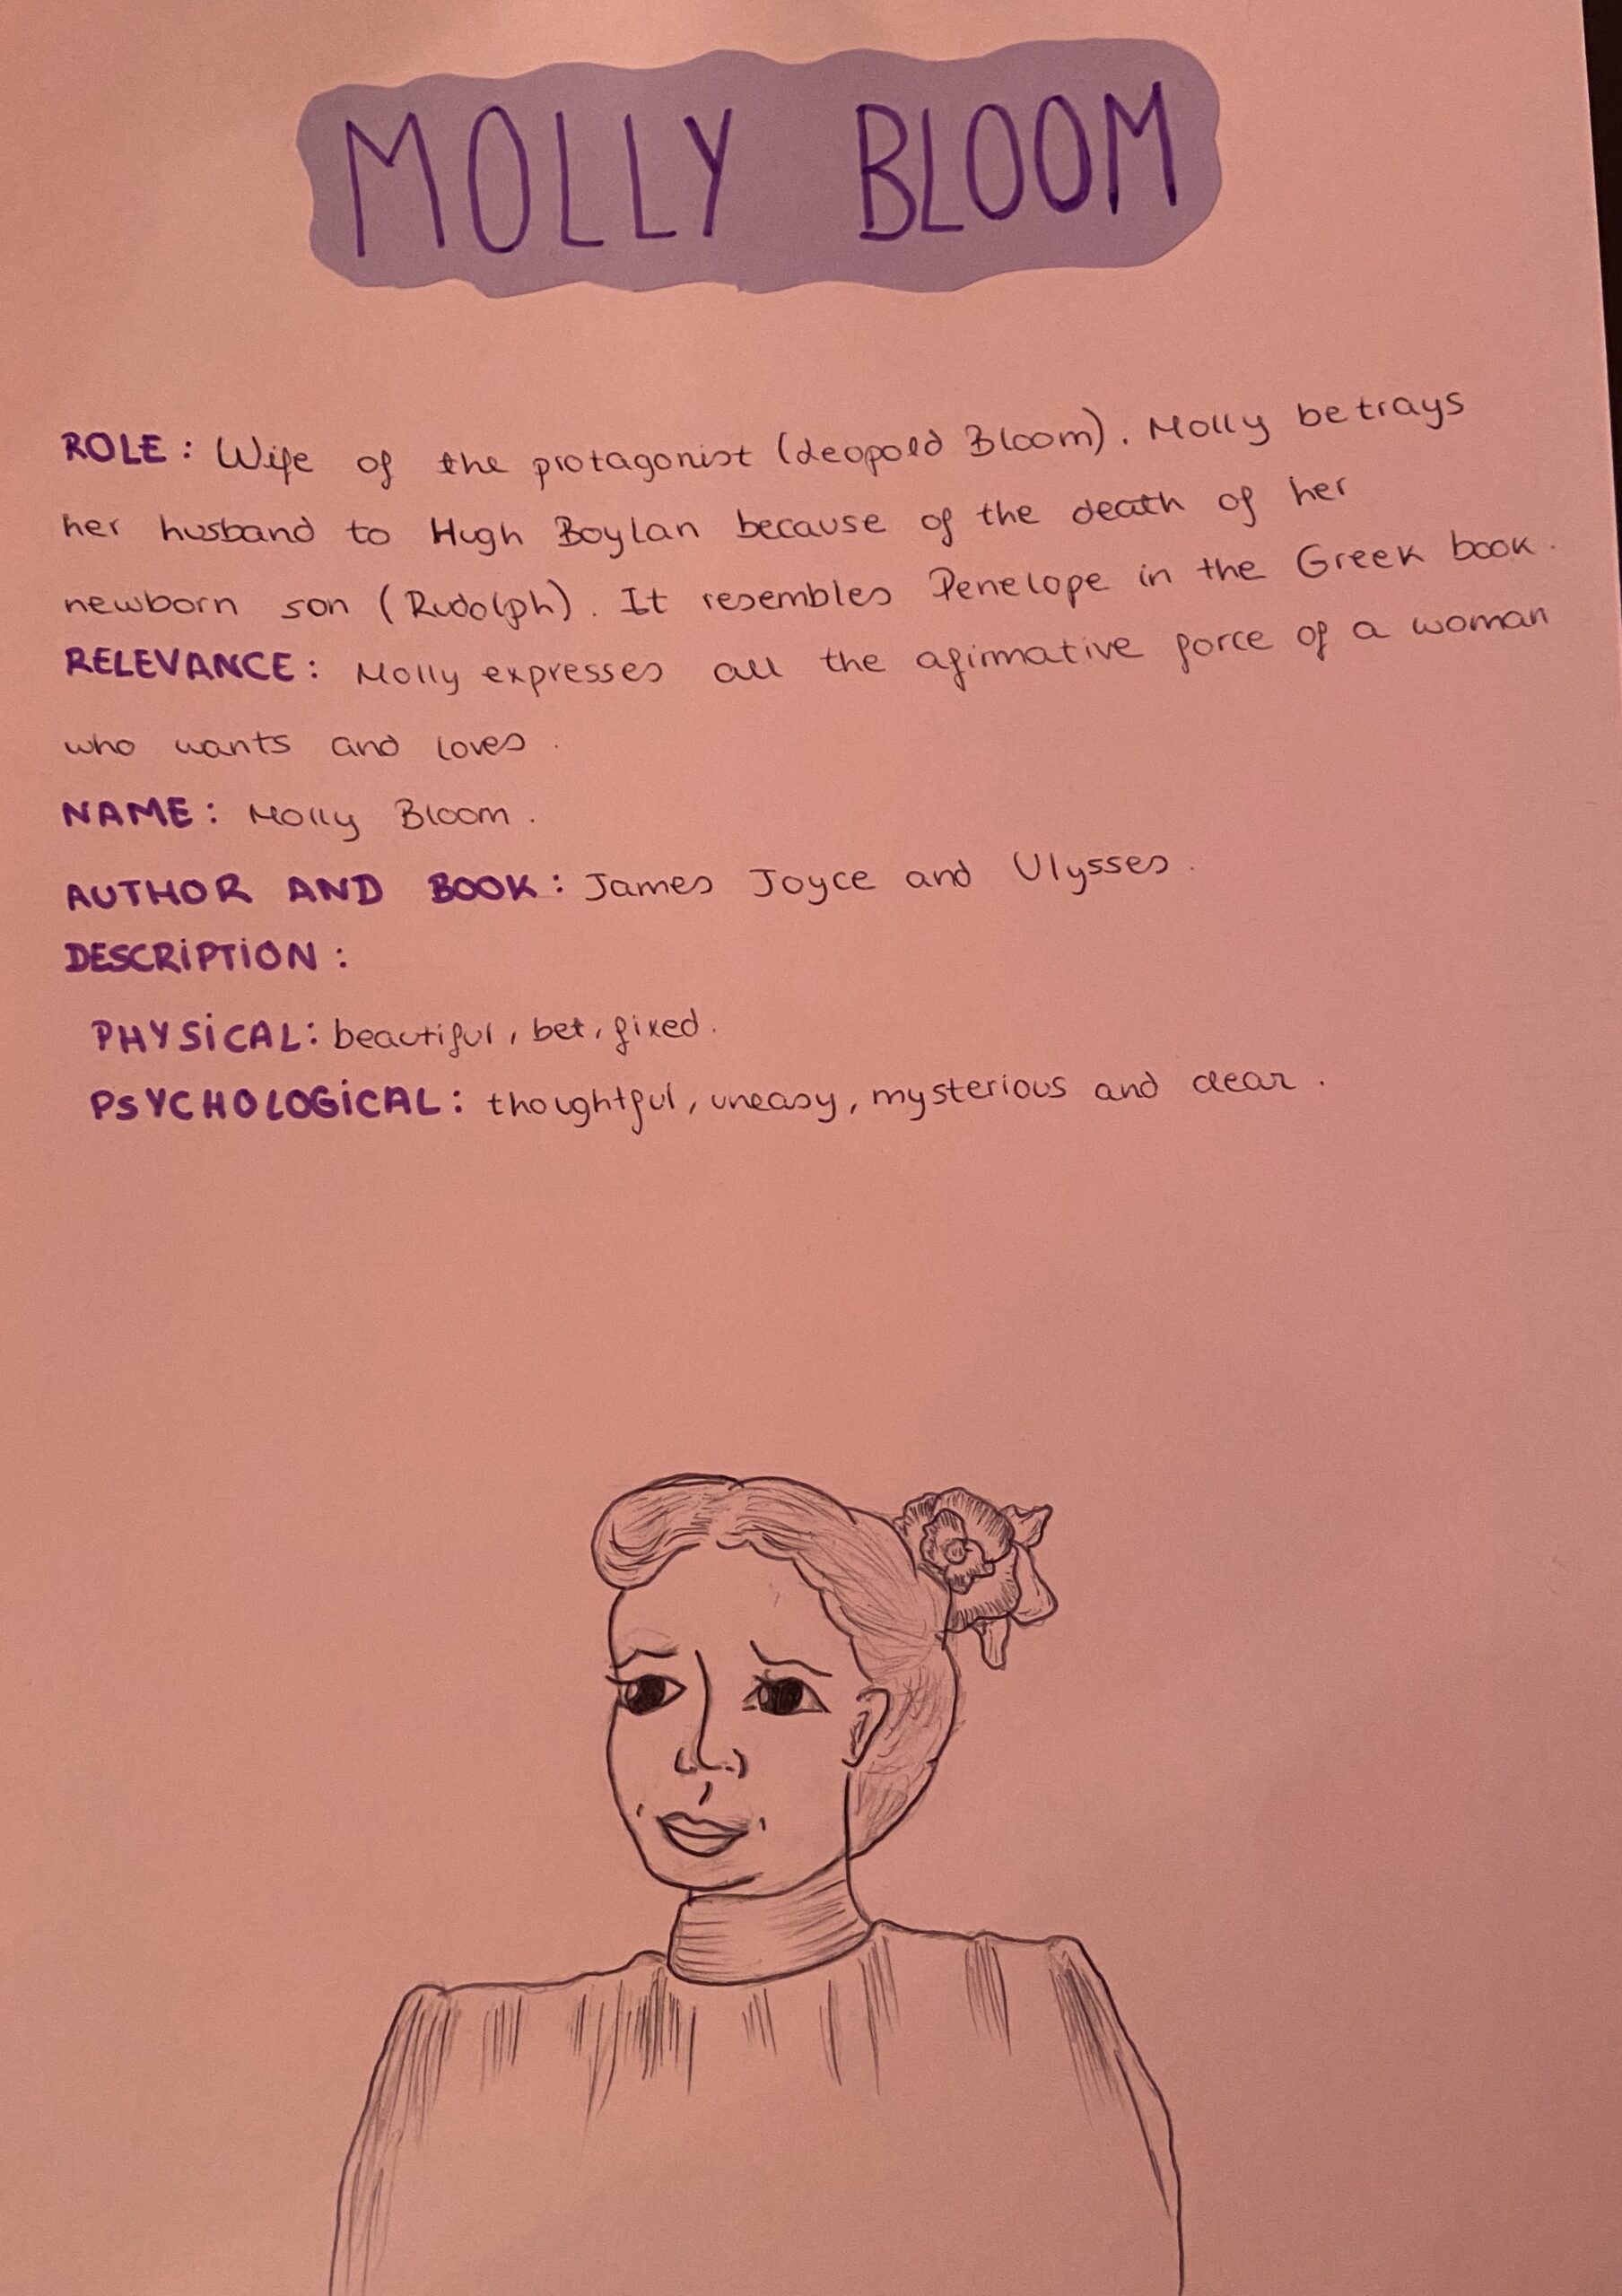 MOLLY BLOOM
ROLE: Wife of the protagonist (Leopold Bloom). Molly betrays
her husband to Hugh Boylan because of the death of her
newborn son (Rudolph). It resembles Penelope in the Greek book.
RELEVANCE: Molly expresses all the afirmative force of a woman
who wants and loves.
NAME: Molly Bloom.
AUTHOR AND BOOK: James Joyce and Ulysses.
DESCRIPTION:
PHYSICAL: beautiful, bet, fixed.
PSYCHOLOGICAL: thoughtful, uneasy, mysterious and clear.